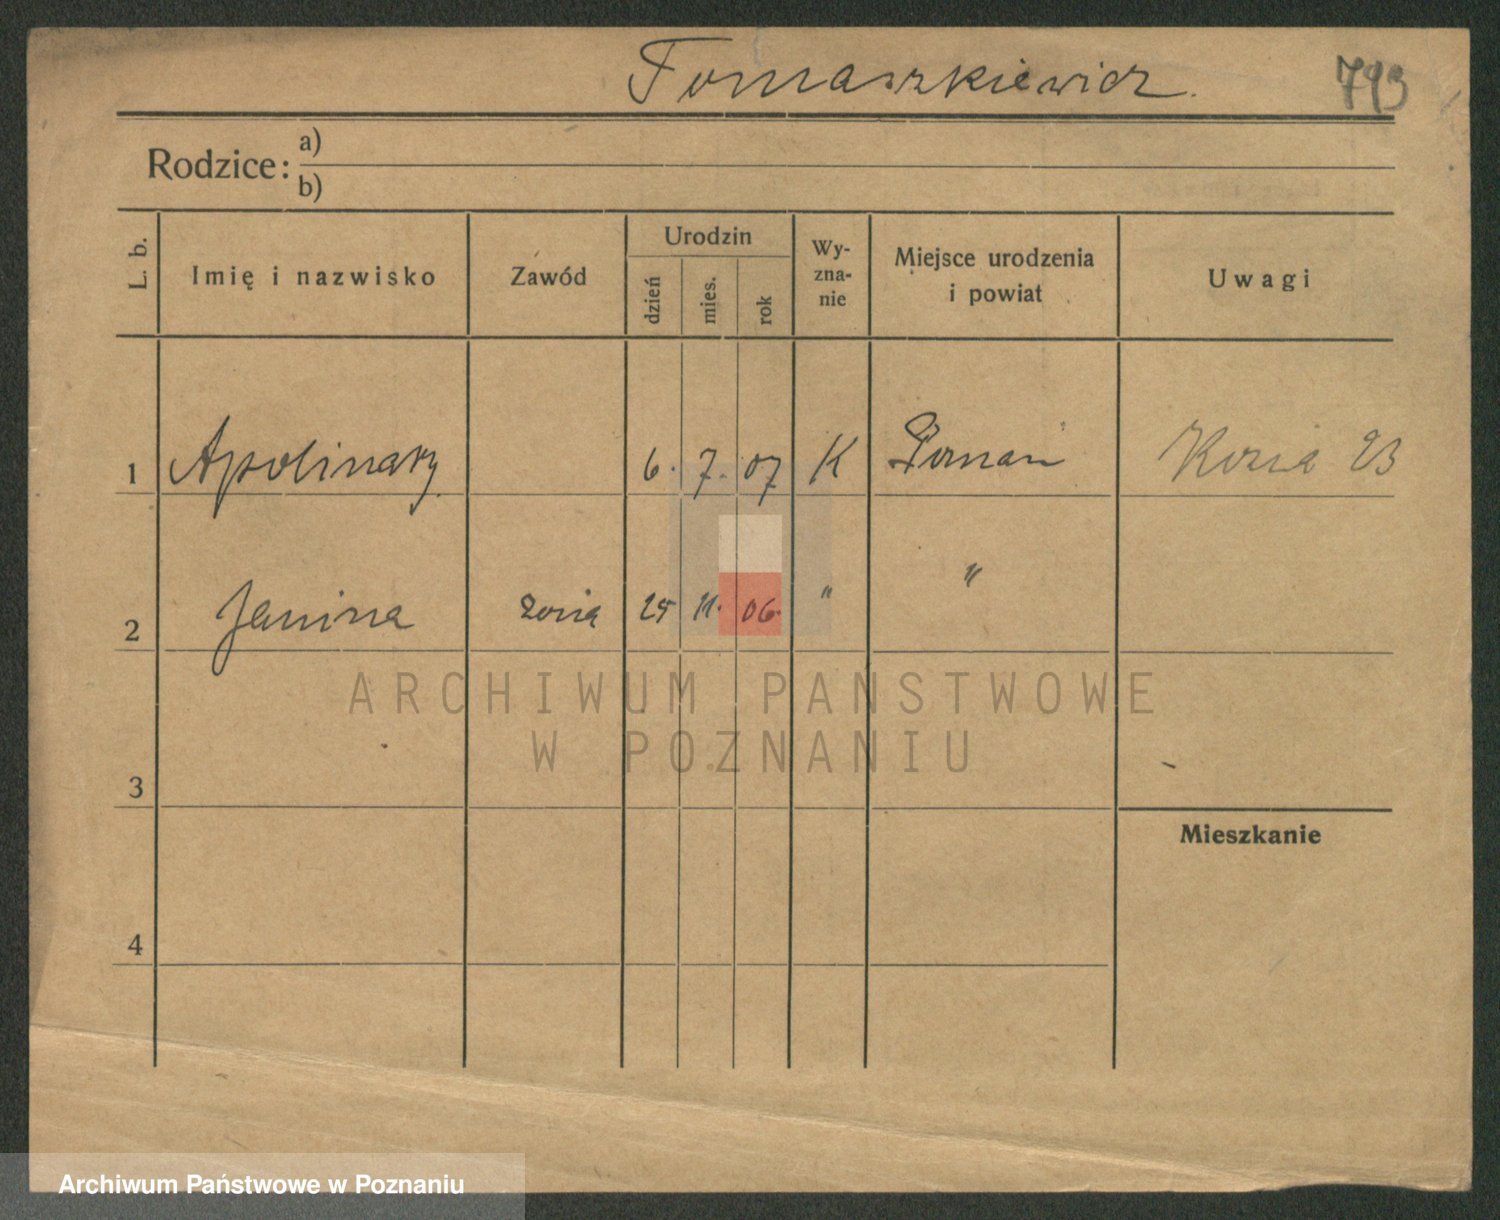 Tomaszkiewicz. 793
Rodzice: a)
b)
L. b. Imię i nazwisko Zawód Urodzin dzień mies. rok Wy-zna-nie Miejsce urodzenia i powiat Uwagi
1 Apolinary 6. 7. 07 K Poznań Kozia 23
2 Janina żona 25 11. 06. " "
ARCHIWUM PAŃSTWOWE
W POZNANIU
3
Mieszkanie
4
Archiwum Państwowe w Poznaniu